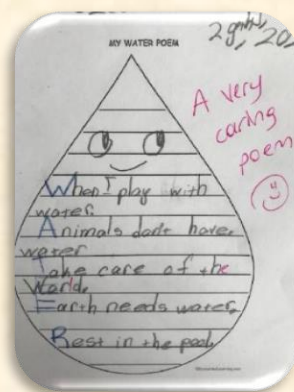 MY WATER POEM
A very
caring
poem
When I play with
water.
Animals don't have
water
Take care of the
World.
Earth needs water.
Rest in the pool.